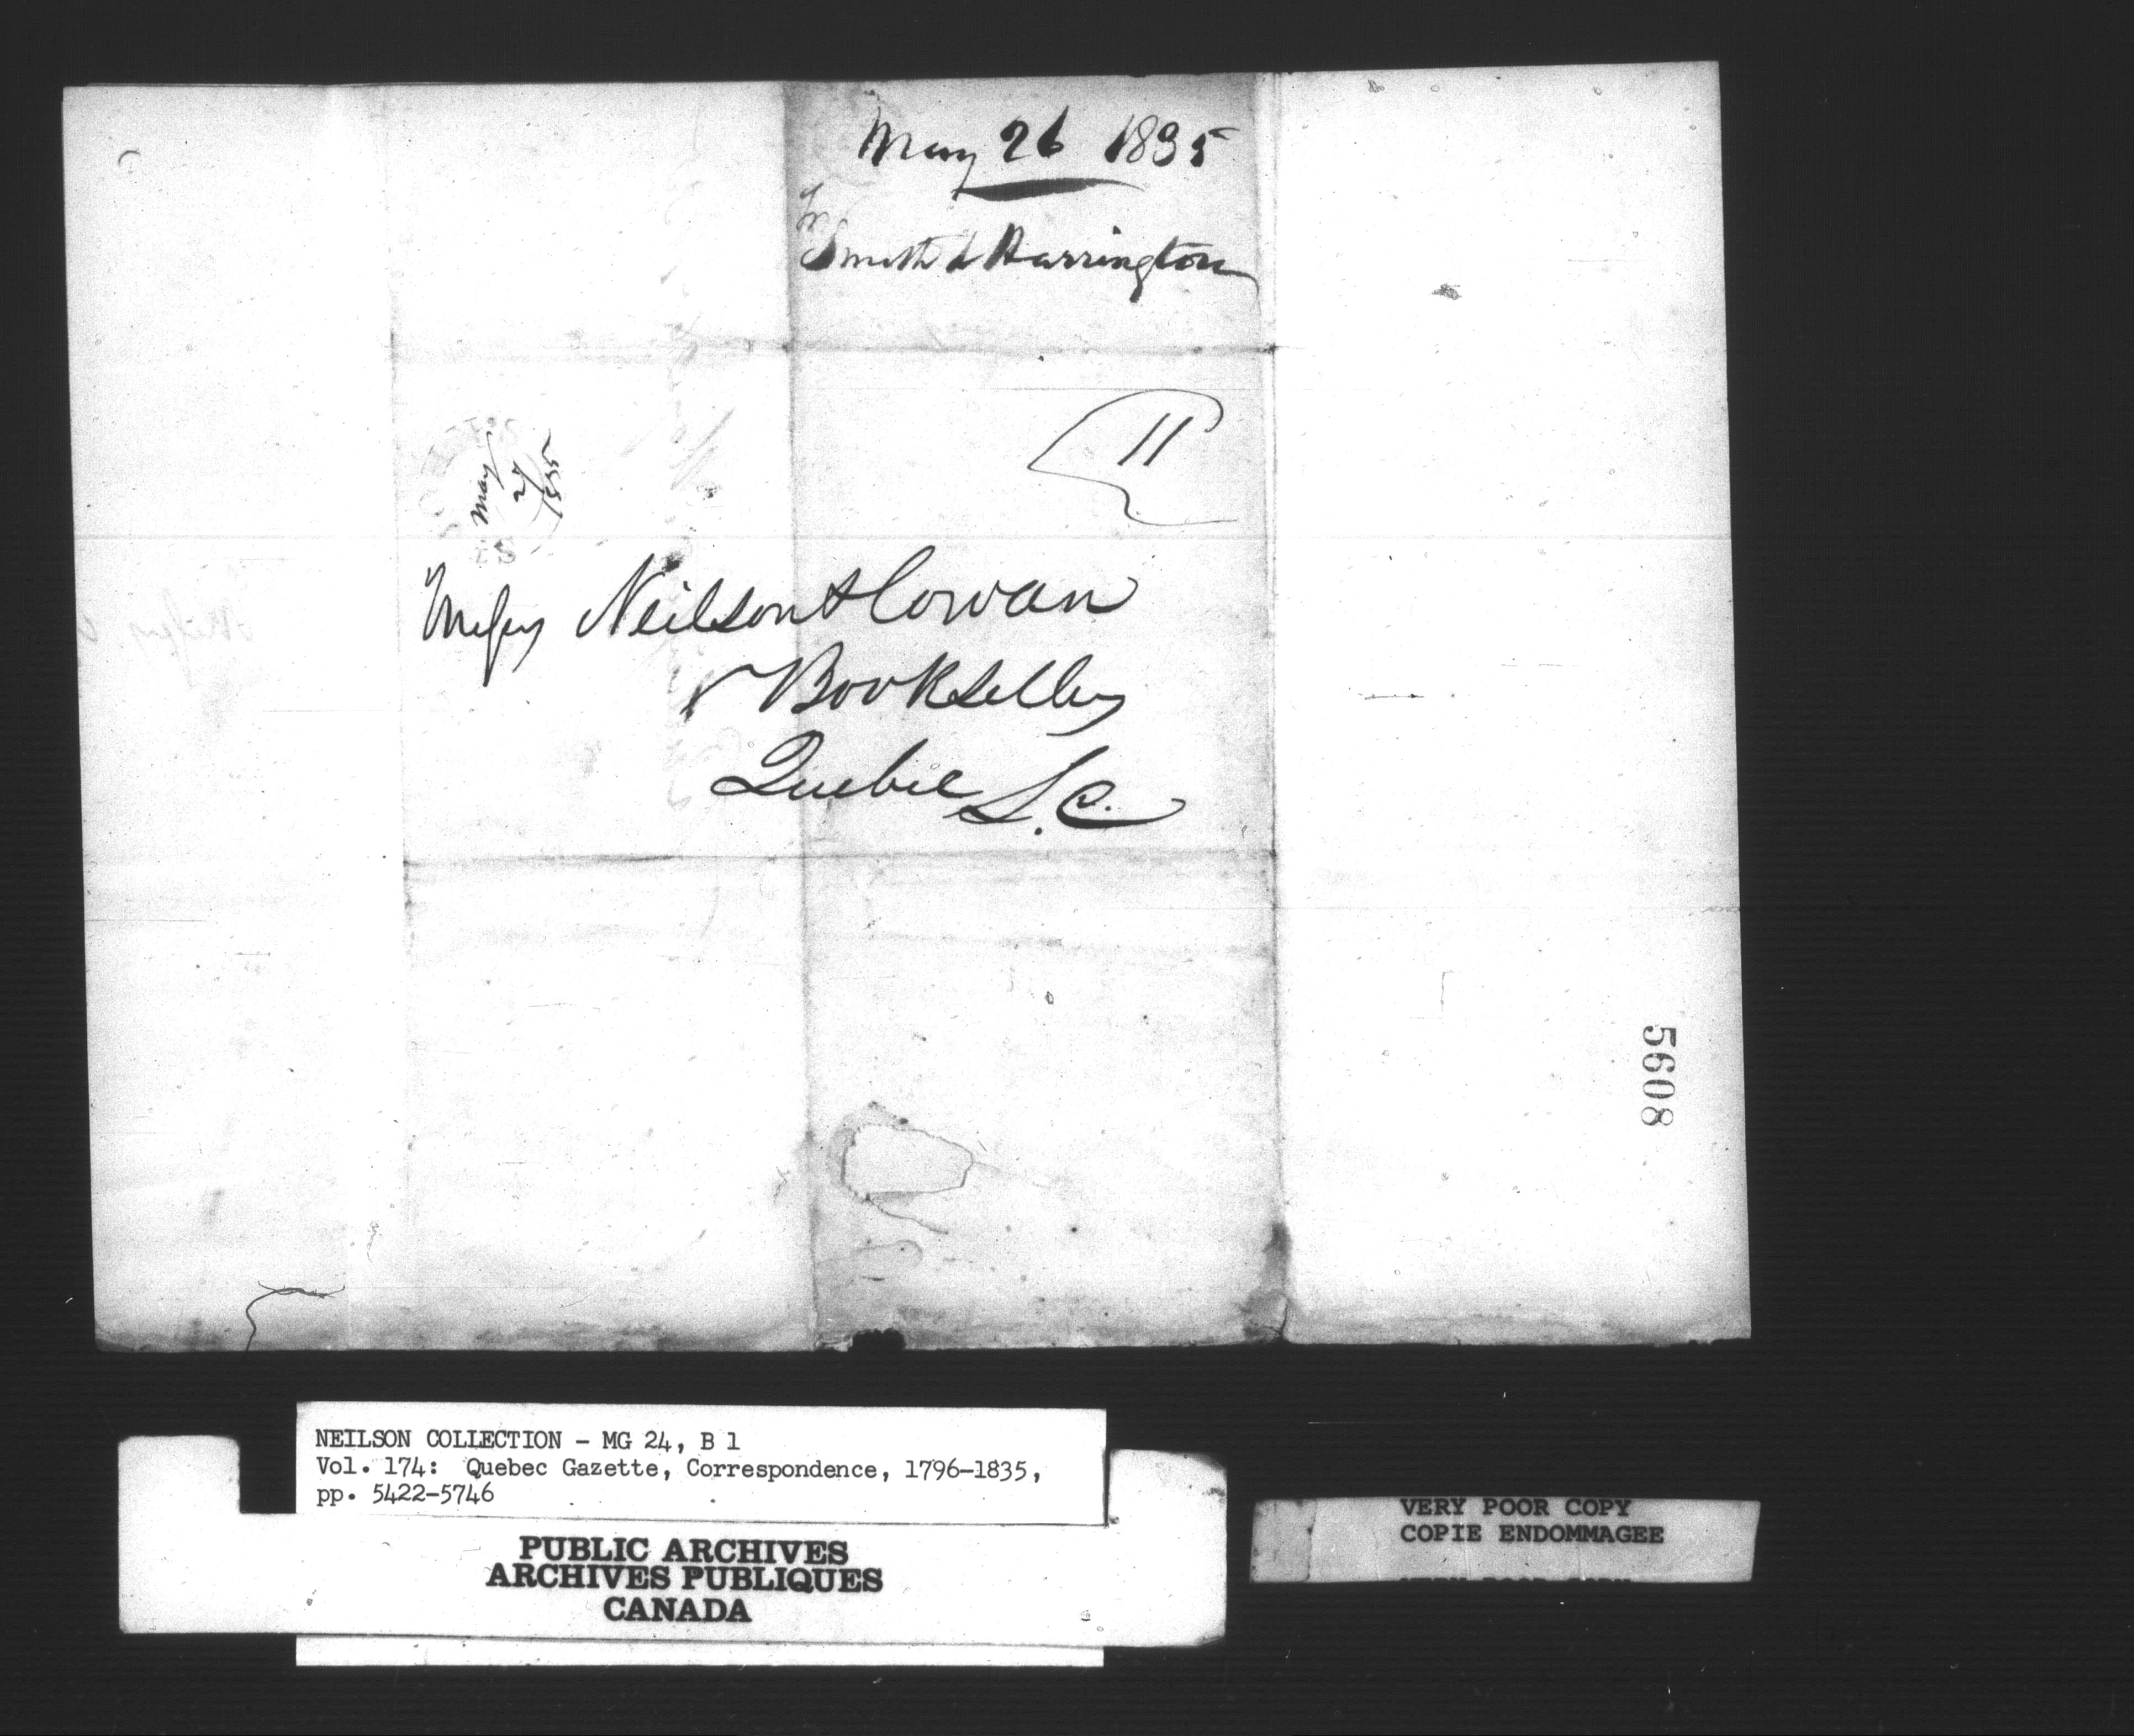 May 26 1835
Fr
Smith & Harrington
11
May
27
1835
Messrs Neilson & Cowan
Booksellers
Quebec L.C.
5608
NEILSON COLLECTION - MG 24, B 1
Vol. 174: Quebec Gazette, Correspondence, 1796-1835,
pp. 5422-5746
PUBLIC ARCHIVES
ARCHIVES PUBLIQUES
CANADA
VERY POOR COPY
COPIE ENDOMMAGEE